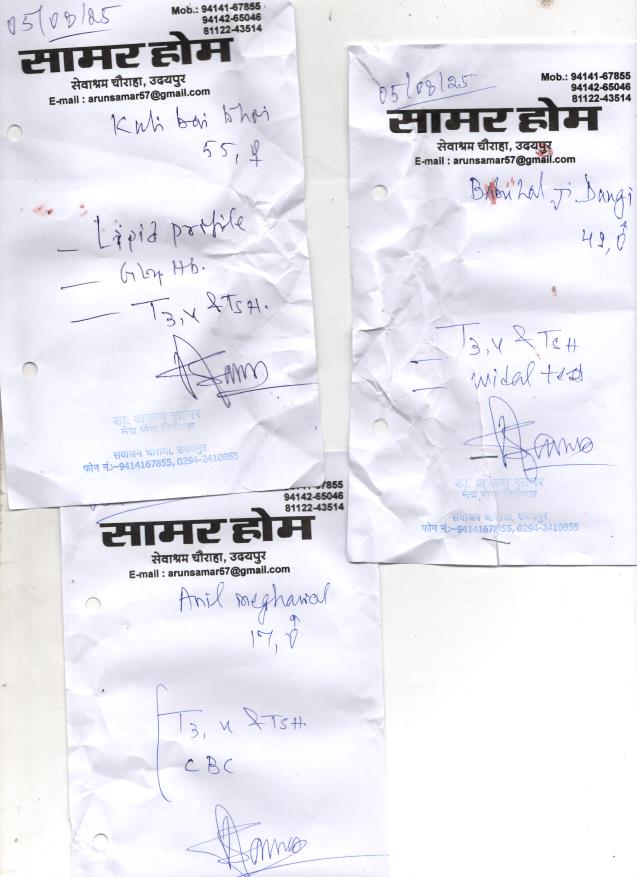 05/08/25
Mob.: 94141-67855
94142-65046
81122-43514
सामर होम
सेवाश्रम चौराहा, उदयपुर
E-mail : arunsamar57@gmail.com
Kali bai
55, ♀
— Lipid profile
— Gly Hb.
— T3, 4 & TSH.
डा. अरूण सामर
नेत्र रोग विशेषज्ञ
सेवाश्रम चौराहा, उदयपुर
फोन नं.:-9414167855, 0294-2410855
05/08/25
Mob.: 94141-67855
94142-65046
81122-43514
सामर होम
सेवाश्रम चौराहा, उदयपुर
E-mail : arunsamar57@gmail.com
Babulal ji Dangi
49, ♂
— T3, 4 & TSH
— widal test
डा. अरूण सामर
नेत्र रोग विशेषज्ञ
सेवाश्रम चौराहा, उदयपुर
फोन नं.:-9414167855, 0294-2410855
7855
94142-65046
81122-43514
सामर होम
सेवाश्रम चौराहा, उदयपुर
E-mail : arunsamar57@gmail.com
Anil meghawal
17, ♂
T3, 4 & TSH
CBC